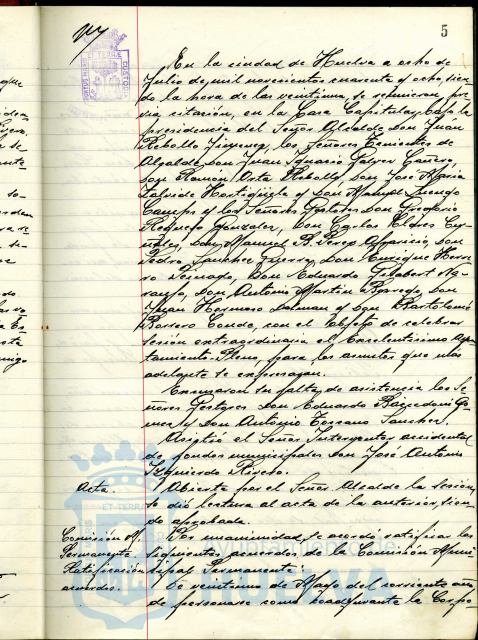 5
En la ciudad de Huelva a ocho de
Julio de mil novecientos cuarenta y ocho, sien
do la hora de las veintiuna se reunieron, pre
via citación, en la Casa Capitular, bajo la
presidencia del Señor Alcalde Don Juan
Rebollo Jimenez, los Señores Tenientes de
Alcalde Don Juan Ignacio Galvez Cañero,
Don Ramón Orta Rebollo, Don José Maria
Hortigüela y Don Manuel
Camps y los Señores Gestores Don Gregorio
Requejo Gonzalez, Don Carlos
Don Manuel R. Perez Aparicio, Don
Pedro Sanchez Guerra, Don Enrique
Don Eduardo
Don Antonio Martín Borrego, Don
Juan Hermoso y Don Bartolomé
Borrero Conde, con el objeto de celebrar
sesión extraordinaria el Excelentísimo Ayun
tamiento Pleno, para los asuntos que más
adelante se expresan.
Excusaron su falta de asistencia los Se
ñores Gestores Don Eduardo Gó
mez y Don Antonio Sanchez.
Asistió el Señor Interventor accidental
de fondos municipales Don José Antonio
Izquierdo Rivero.
Acta.
Abierta por el Señor Alcalde la sesión
se dió lectura al acta de la anterior, sien
do aprobada.
Comisión M.
Permanente
Ratificación
acuerdos.
Por unanimidad se acordó ratificar los
siguientes acuerdos de la Comisión Muni
cipal Permanente:
de Mayo del corriente año
de personarse como coadyuvante la Corpo
AYUNTAMIENTO DE
HUELVA